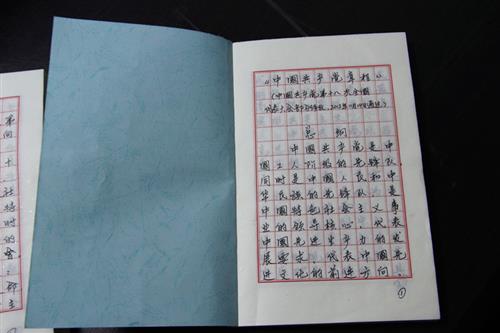 《中国共产党章程》
(中国共产党第十八次全国
代表大会部分修改，2012年11月14日通过)
总纲
中国共产党是中
国工人阶级的先锋队，
同时是中国人民和中
华民族的先锋队，是
中国特色社会主义事
业的领导核心，代表
中国先进生产力的发
展要求，代表中国先
进文化的前进方向，
①
弟
向
十
社
特
时
的
会
部
主